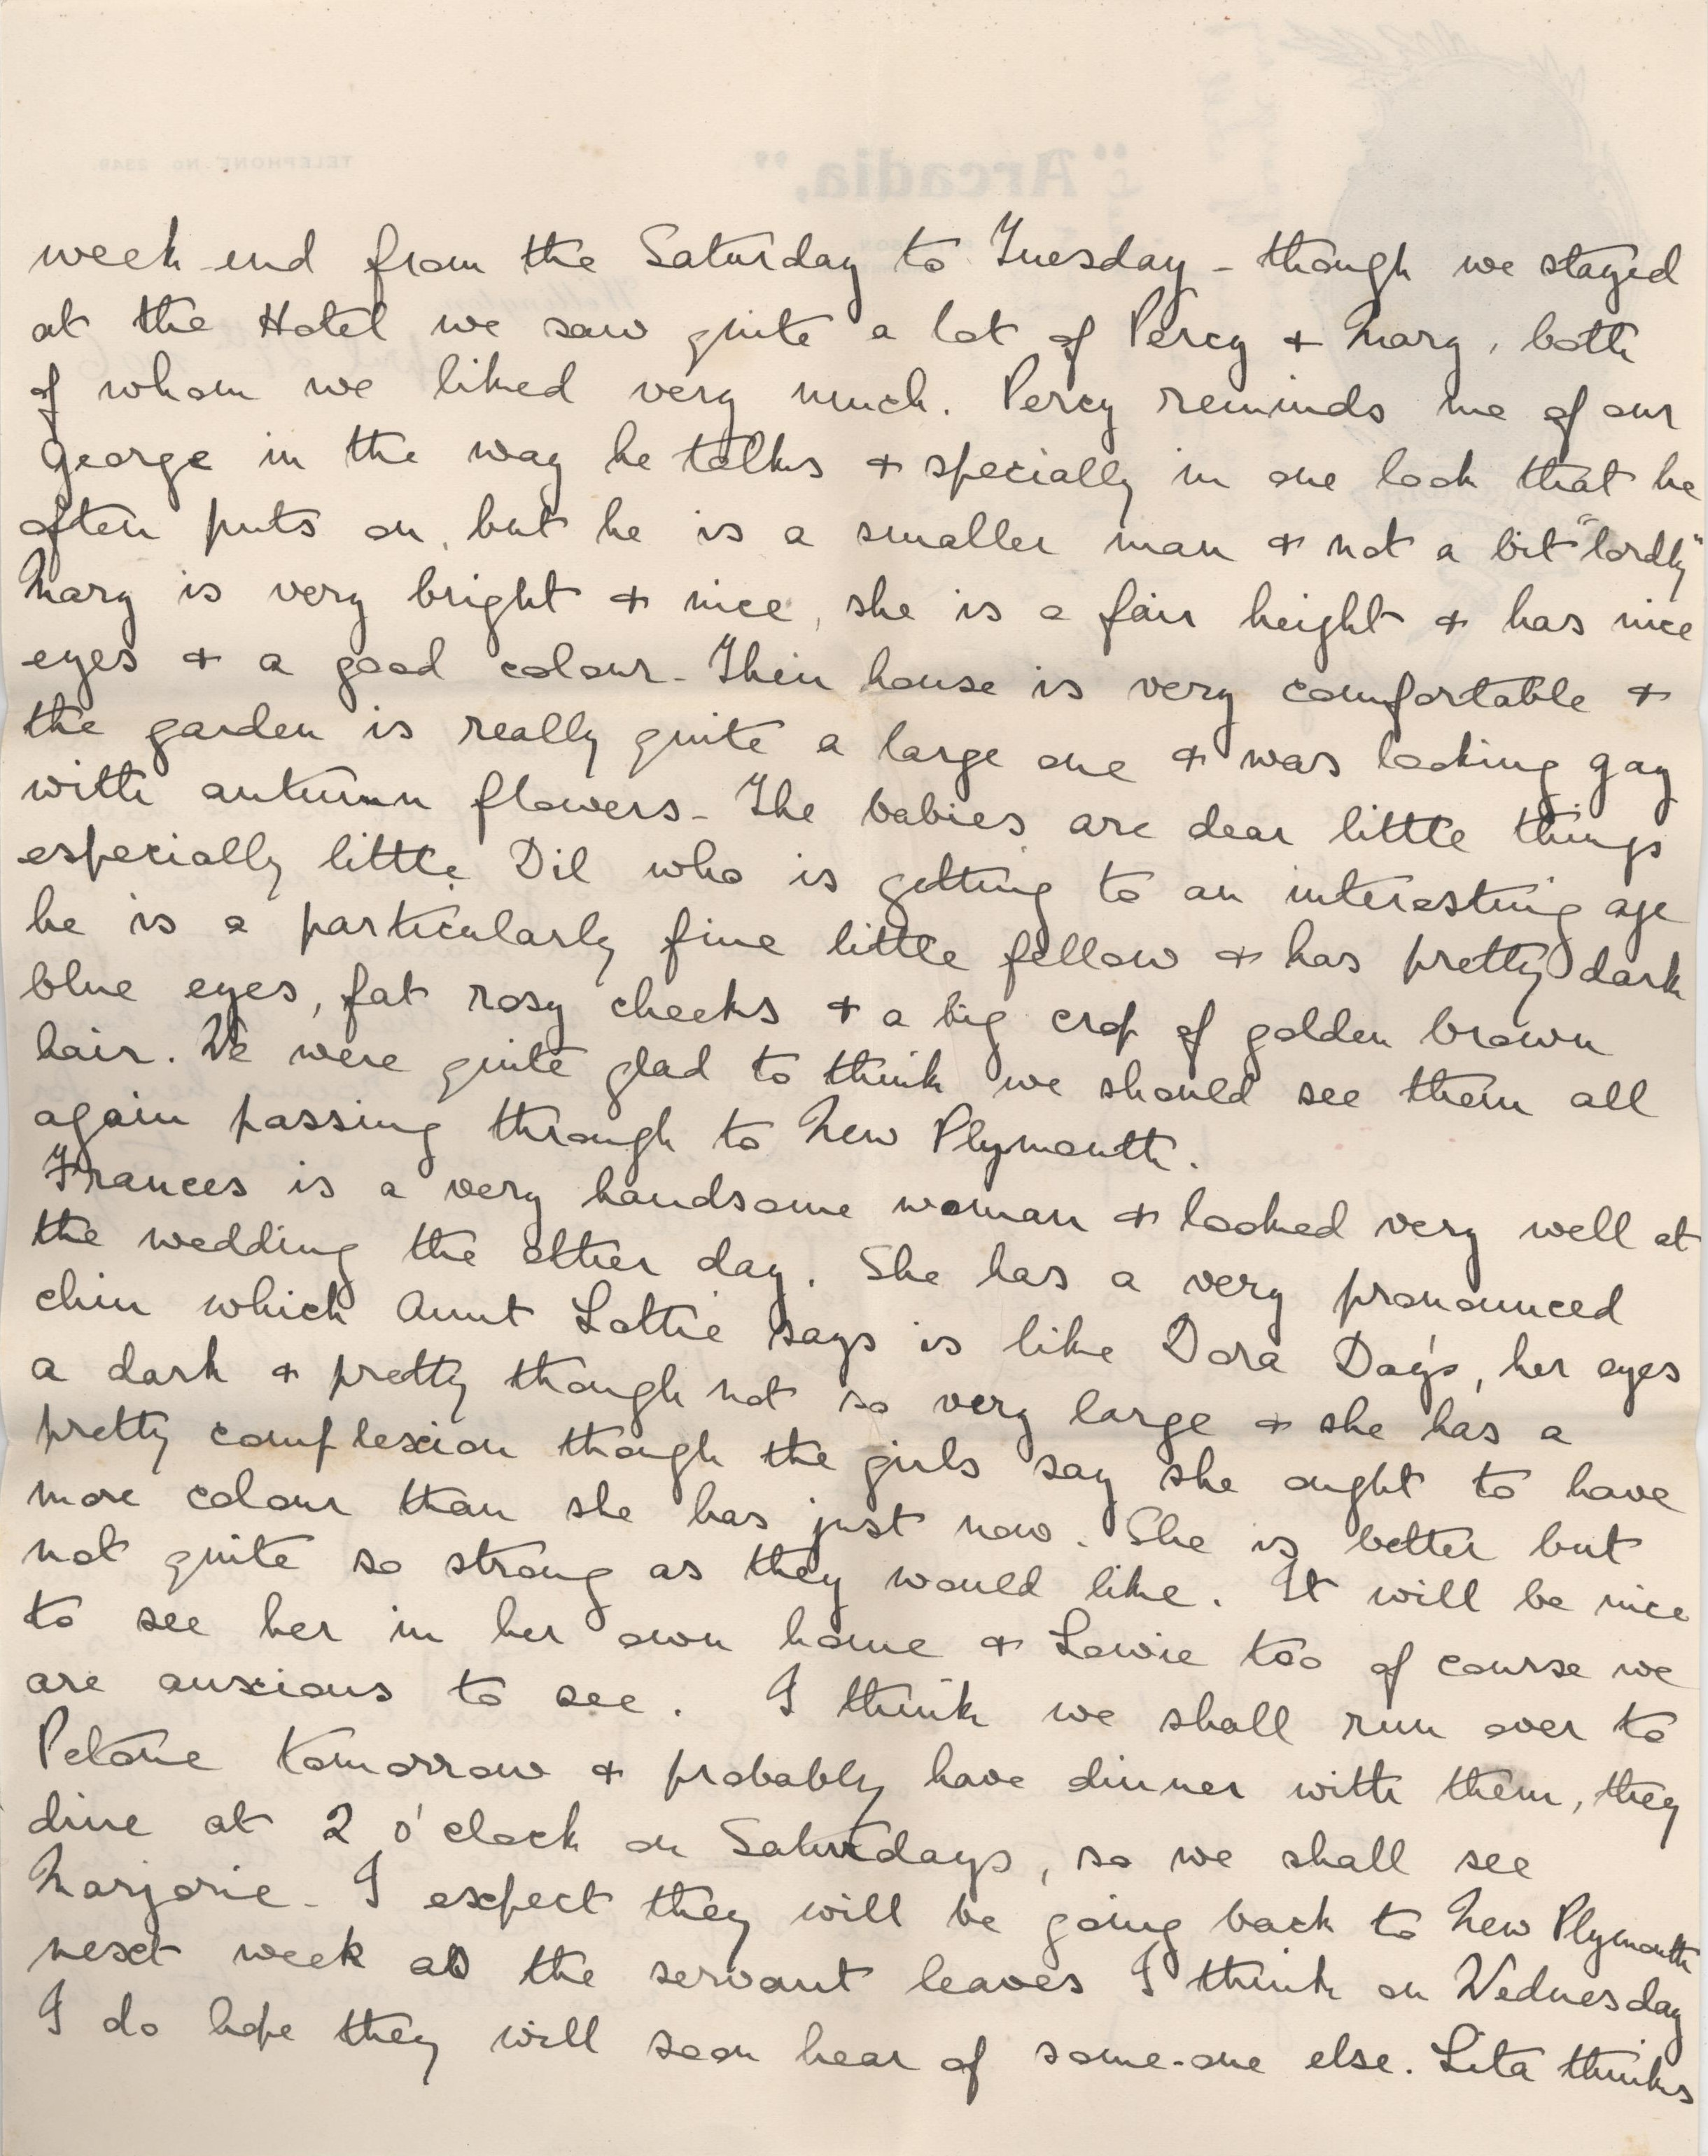 week-end from the Saturday to Tuesday - though we stayed
at the Hotel we saw quite a lot of Percy + Mary, both
of whom we liked very much. Percy reminds me of our
George in the way he talks + specially in one look that he
often puts on, but he is a smaller man + not a bit "lordly"
Mary is very bright + nice, she is a fair height + has nice
eyes + a good colour - Their house is very comfortable +
the garden is really quite a large one + was looking gay
with autumn flowers - The babies are dear little things
especially little Dil who is getting to an interesting age
he is a particularly fine little fellow + has pretty dark
blue eyes, fat rosy cheeks + a big crop of golden brown
hair. We were quite glad to think we should see them all
again passing through to New Plymouth.
Frances is a very handsome woman + looked very well at
the wedding the other day. She has a very pronounced
chin which Aunt Lottie says is like Dora Day's, her eyes
a dark + pretty though not so very large + she has a
pretty complexion though the girls say she ought to have
more colour than she has just now. She is better but
not quite so strong as they would like. It will be nice
to see her in her own home + Lowie too of course we
are anxious to see. I think we shall run over to
Petone tomorrow + probably have dinner with them, they
dine at 2 o'clock on Saturdays, so we shall see
Marjorie - I expect they will be going back to New Plymouth
next week as the servant leaves I think on Wednesday
I do hope they will soon hear of some-one else. Lita thinks